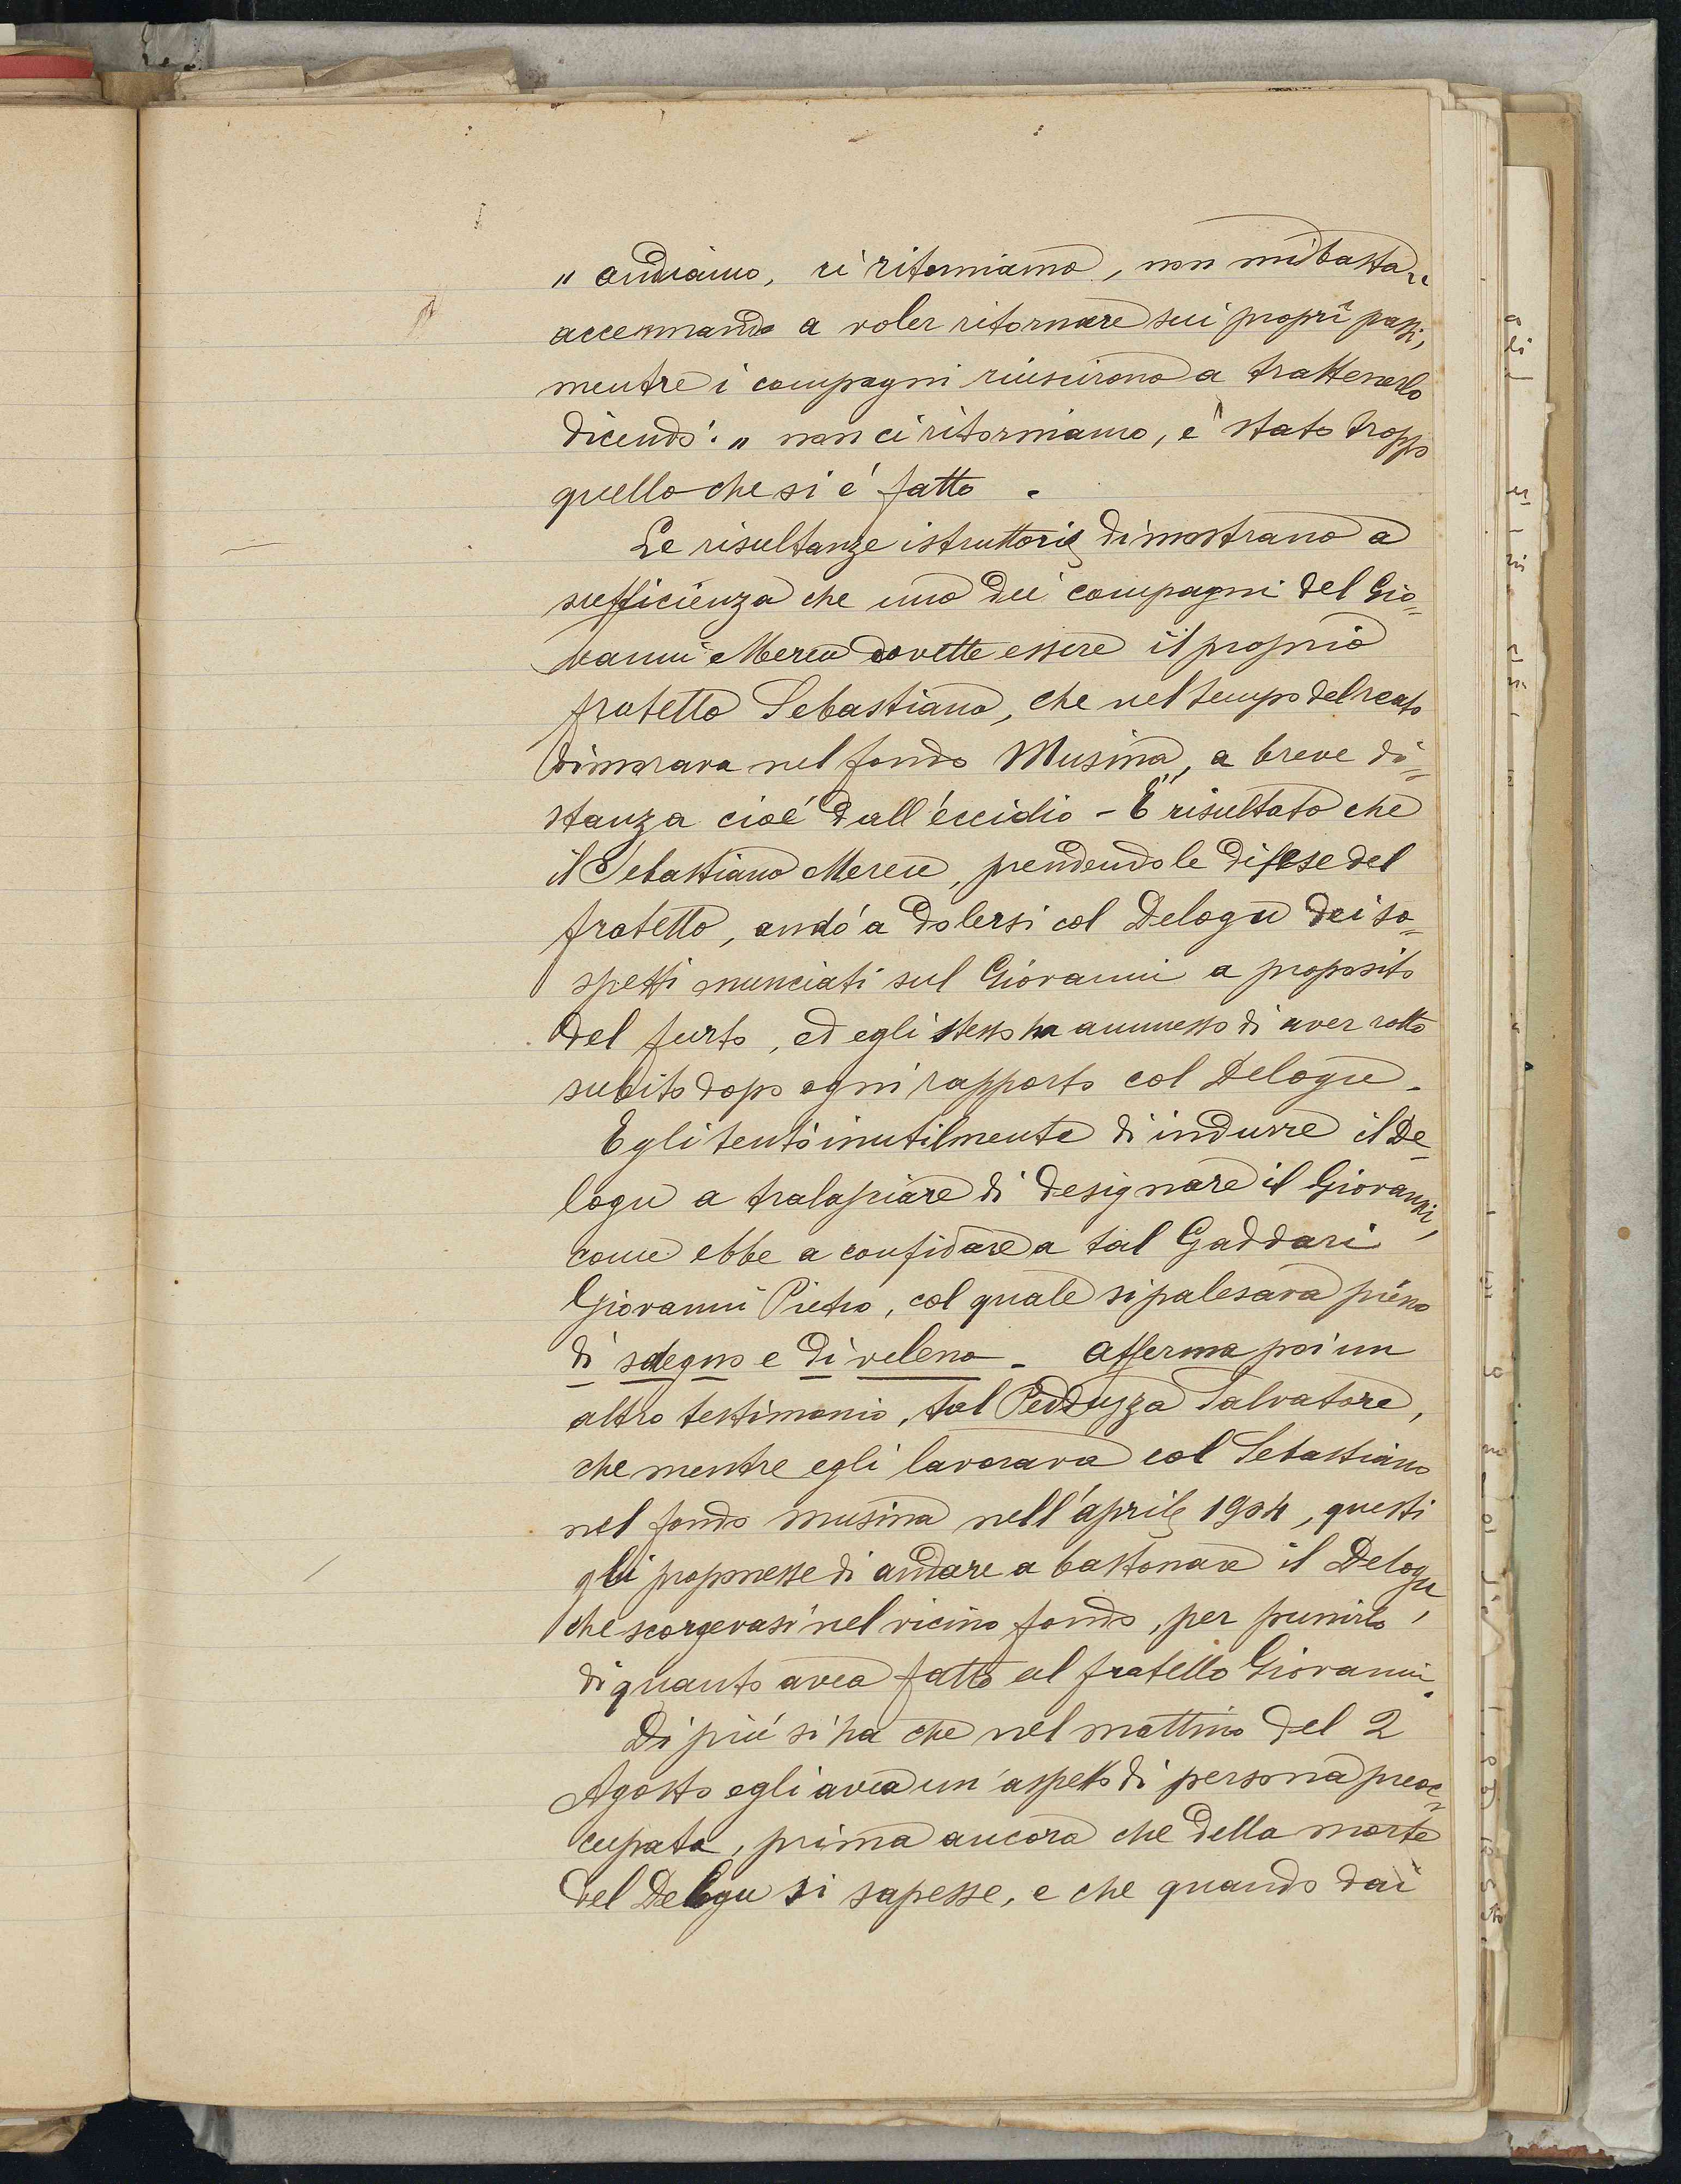 " andiamo, ci ritorniamo, non mi basta "
accennando a voler ritornare sui proprî passi,
mentre i compagni riuscirono a trattenerlo
dicendo: " non ci ritorniamo, è stato troppo
quello che si é fatto .
Le risultanze istruttorie dimostrano a
sufficienza che uno dei compagni del Gio=
vanni Mereu dovette essere il proprio
fratello Sebastiano, che nel tempo del reato
dimorava nel fondo Musina, a breve di=
stanza cioé dall'eccidio - È risultato che
il Sebastiano Mereu, prendendo le difese del
fratello, andó a dolersi col Delogu dei so=
spetti nunciati sul Giovanni a proposito
del furto, ed egli stesso ha ammesso di aver rotto
subito dopo ogni rapporto col Delogu.
Egli tentò inutilmente di indurre il De=
logu a tralasciare di designare il Giovanni,
come ebbe a confidare a tal Gaddari
Giovanni Pietro, col quale si palesava pieno
di sdegno e di veleno. Afferma poi un
altro testimonio, tal Pedduzza Salvatore,
che mentre egli lavorava col Sebastiano
nel fondo Musina nell'aprile 1904, questi
gli proponesse di andare a bastonare il Delogu,
che scorgevasi nel vicino fondo, per punirlo
di quanto avea fatto al fratello Giovanni.
Di piú si ha che nel mattino del 2
Agosto egli avea un'aspetto di persona preoc=
cupata, prima ancora che della morte
del Delogu si sapesse, e che quando dai